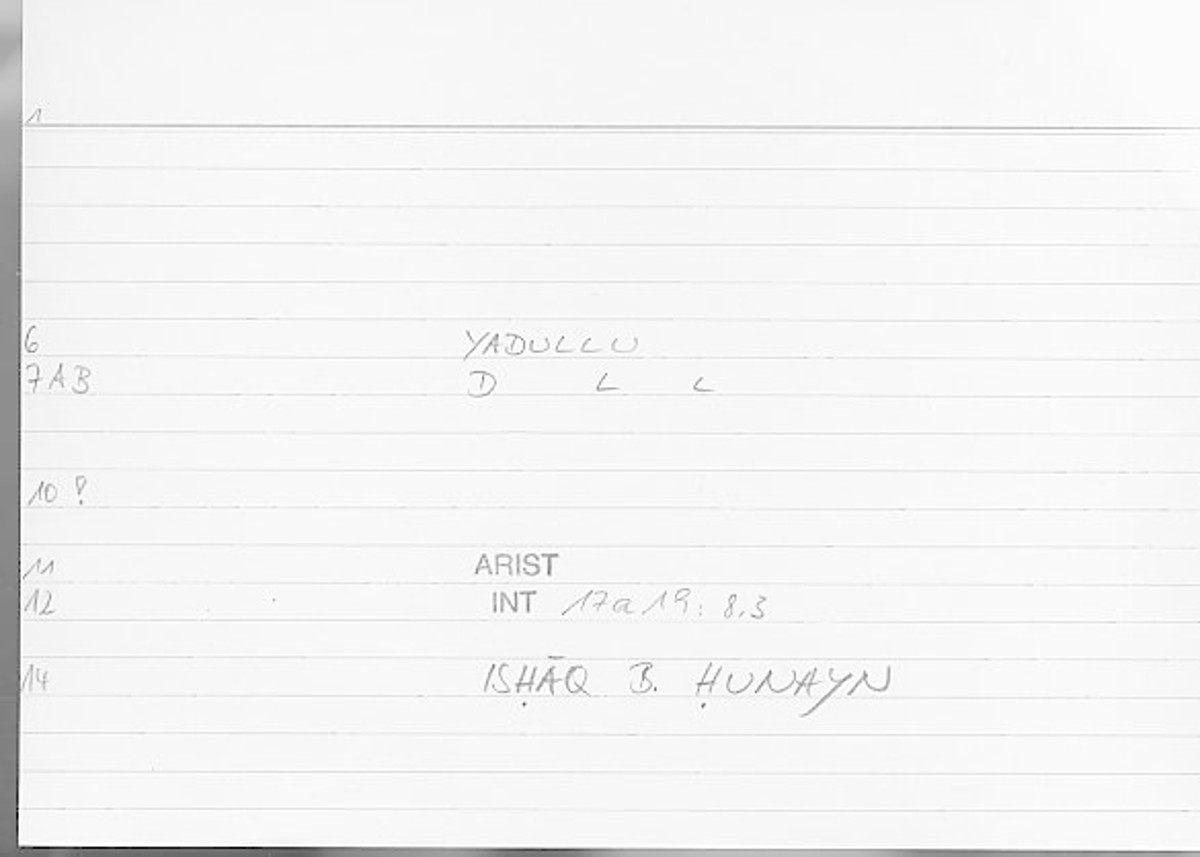 1
6 YADULLU
7AB D L L
10 ?
11 ARIST
12 INT 17a19: 8.3
14 ISḤĀQ B. ḤUNAYN